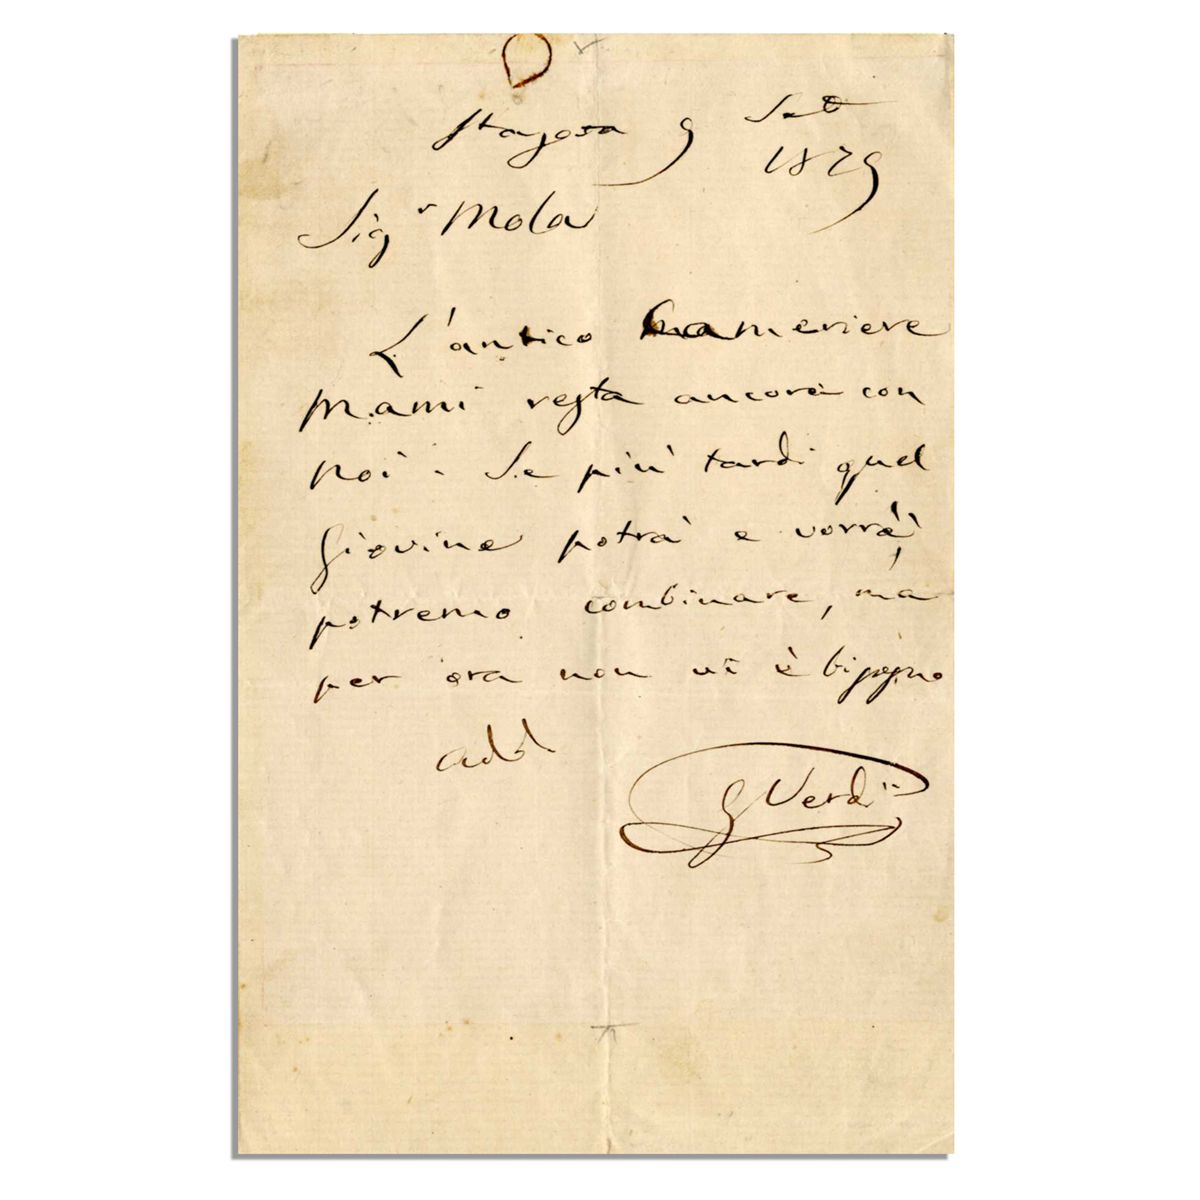 St Agata 9 Set
1879
Sigr Mola
L'antico cameriere
Mami resta ancora con
noi. Se più tardi quel
Giovine potrà e vorrà,
potremo combinare, ma
per ora non vi è bisogno
add.
G Verdi